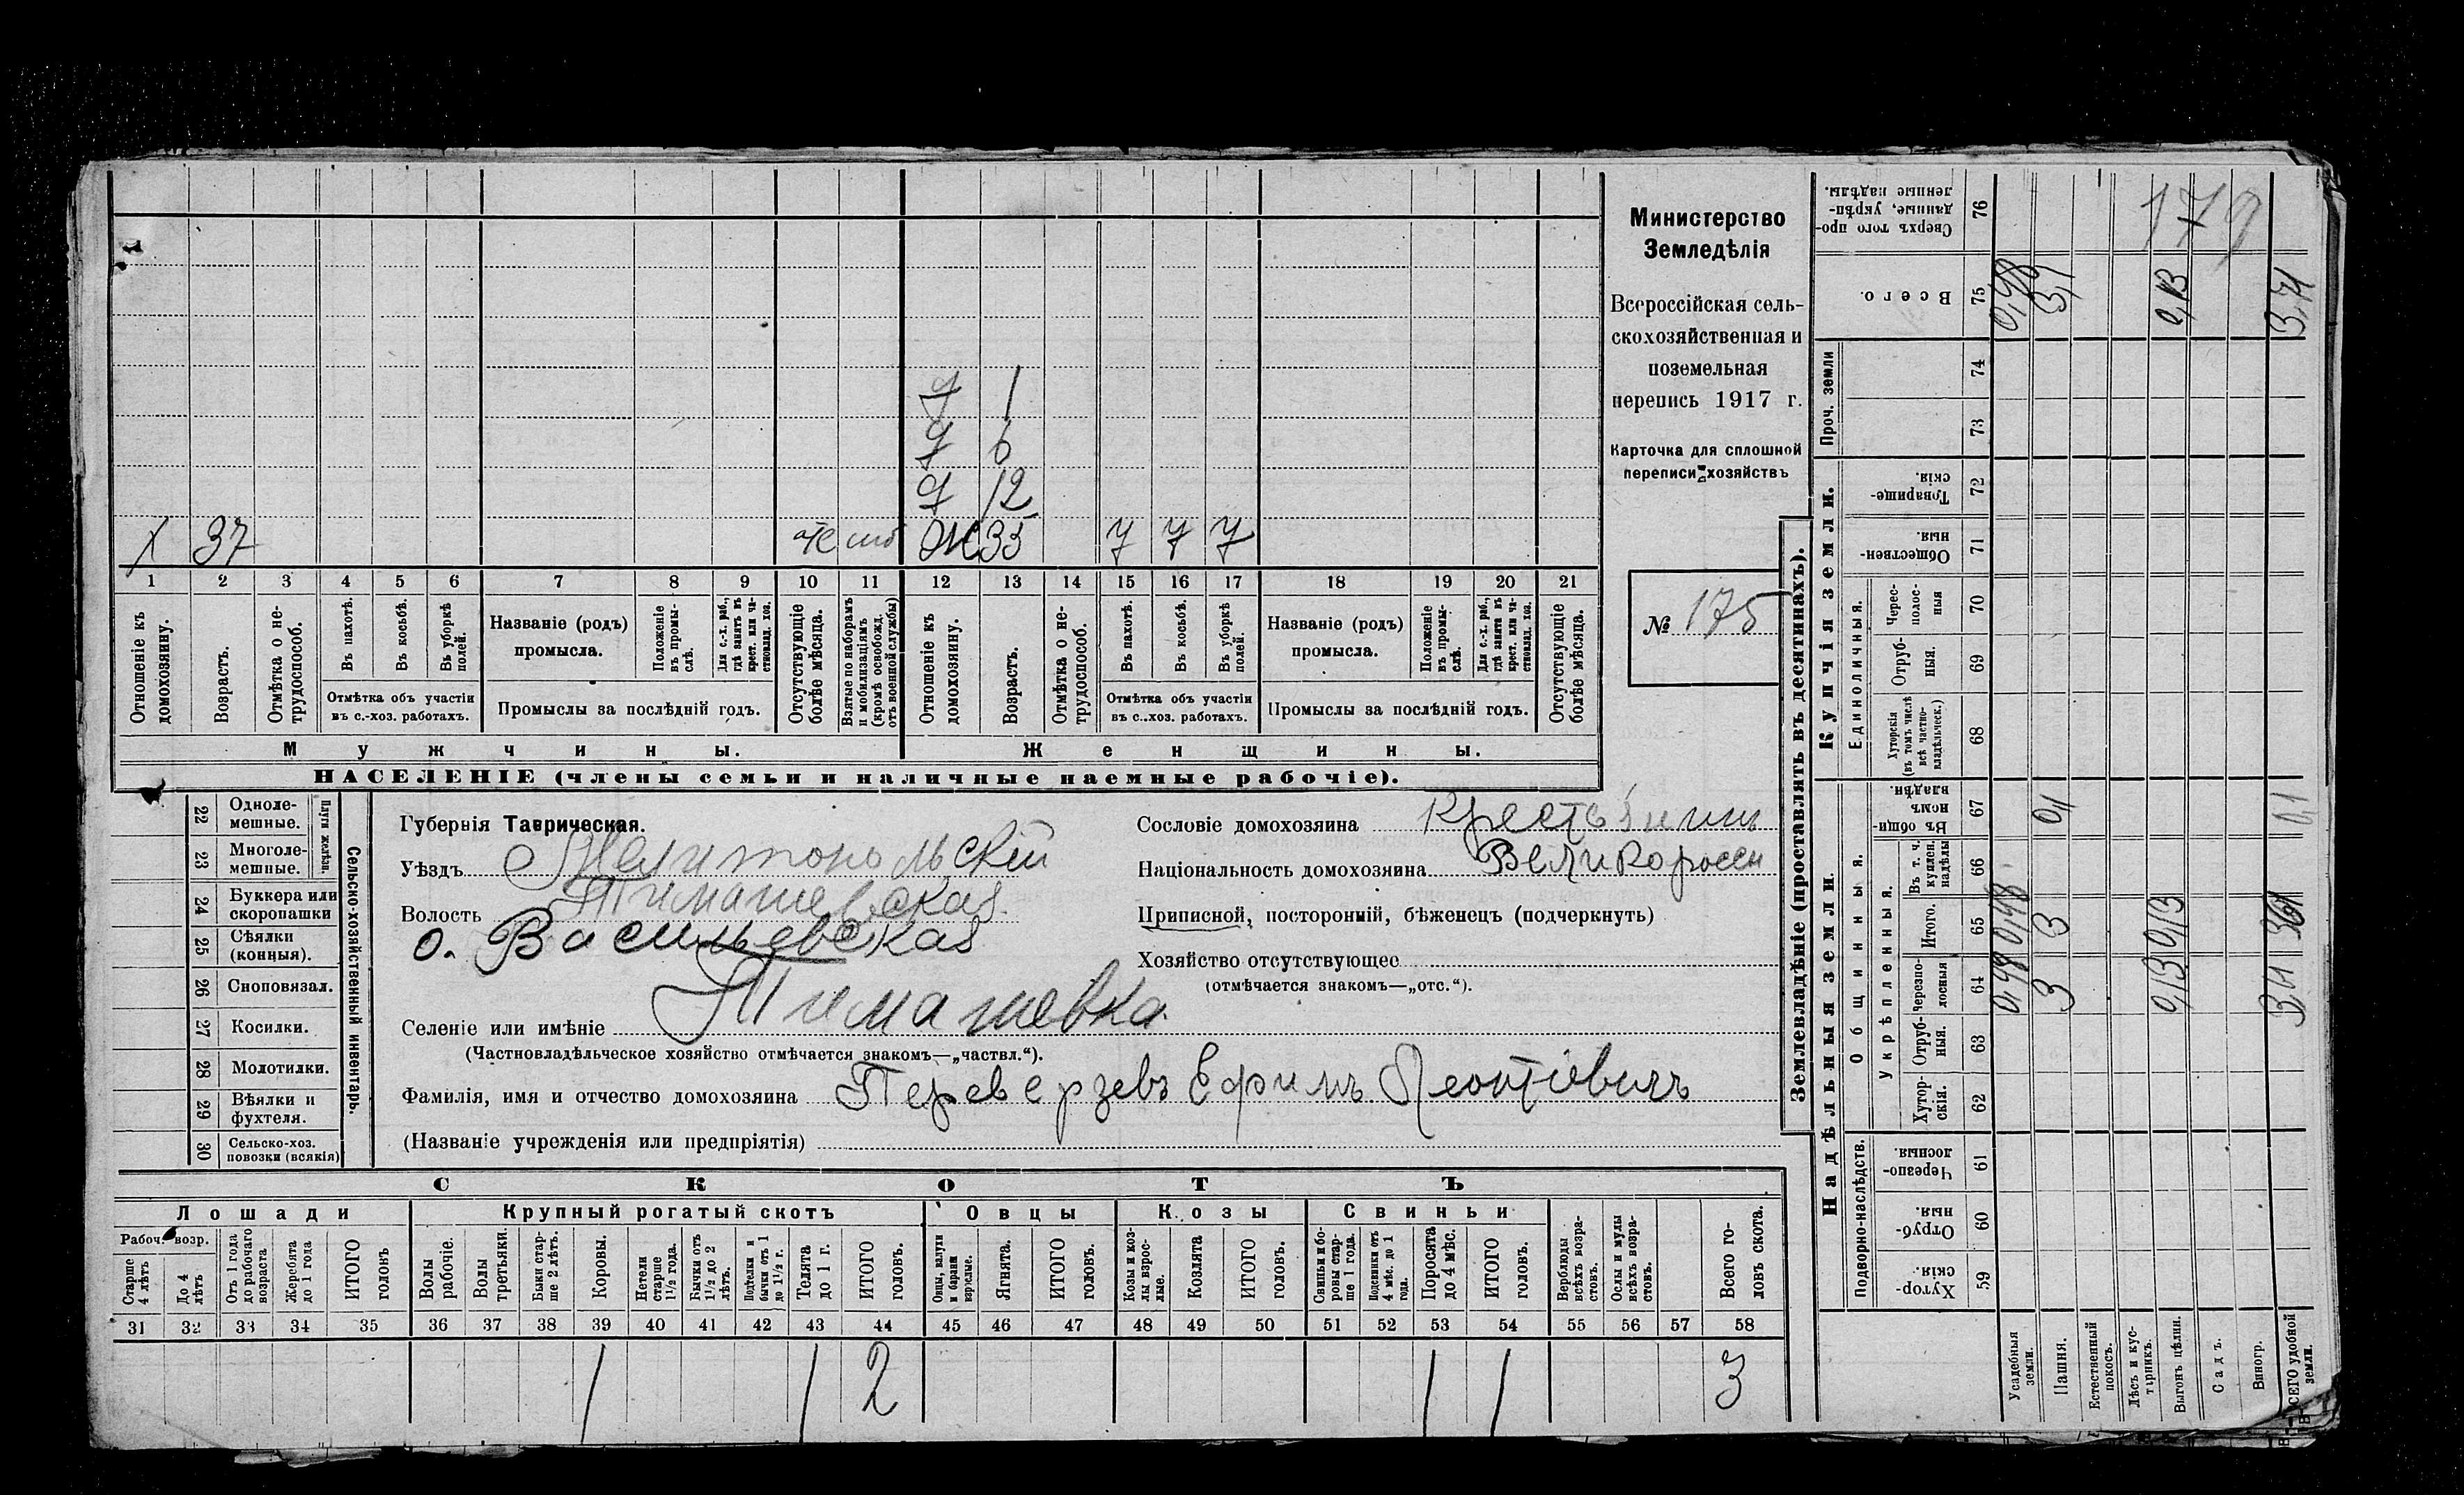 Министерство
Земледѣлія
Всероссійская сель-
скохозяйственная и
поземельная
перепись 1917 г.
Карточка для сплошной
переписи хозяйствъ
№ 175
179
д 1
д 6
д 12
х 37 Ж 33
1 2 3 4 5 6 7 8 9 10 11 12 13 14 15 16 17 18 19 20 21
Отношеніе къ домохозяину.
Возрастъ.
Отмѣтка о не-трудоспособ.
Въ пахотѣ.
Въ косьбѣ.
Въ уборкѣ полей.
Отмѣтка объ участіи
въ с.-хоз. работахъ.
Названіе (родъ)
промысла.
Положеніе въ промы-слѣ.
Для с.-х. раб., гдѣ занятъ въ крест. или ча-стновлад. хоз.
Промыслы за послѣдній годъ.
Отсутствующіе болѣе мѣсяца.
Взятые по наборамъ и мобилизаціямъ (кромѣ освобожд. отъ военной службы)
Отношеніе къ домохозяину.
Возрастъ.
Отмѣтка о не-трудоспособ.
Въ пахотѣ.
Въ косьбѣ.
Въ уборкѣ полей.
Отмѣтка объ участіи
въ с..хоз. работахъ.
Названіе (родъ)
промысла.
Положеніе въ промы-слѣ.
Для с.-х. раб., гдѣ занята въ крест. или ча-стновлад. хоз.
Промыслы за послѣдній годъ.
Отсутствующіе болѣе мѣсяца.
Мужчины. Женщины.
НАСЕЛЕНІЕ (члены семьи и наличные наемные рабочіе).
Губернія Таврическая.
Уѣздъ Мелитопольскій
Волость Тимашевская
о. Васильевская
Селеніе или имѣніе Тимашевка
(Частновладѣльческое хозяйство отмѣчается знакомъ—„частвл.“).
Фамилія, имя и отчество домохозяина Переверзевъ Ефимъ Леонтіевичъ
(Названіе учрежденія или предпріятія)
Сословіе домохозяина Крестьянин
Національность домохозяина Великоросси
Приписной, посторонній, бѣженецъ (подчеркнуть)
Хозяйство отсутствующее
(отмѣчается знакомъ—„отс.“).
Сельско-хозяйственный инвентарь.
Плуги желѣзн.
22 Одноле-мешные.
23 Многоле-мешные.
24 Буккера или скоропашки
25 Сѣялки (конныя).
26 Сноповязал.
27 Косилки.
28 Молотилки.
29 Вѣялки и фухтеля.
30 Сельско-хоз. повозки (всякія)
СКОТЪ
Лошади
Крупный рогатый скотъ
Овцы
Козы
Свиньи
Рабоч. возр.
Старше 4 лѣтъ
До 4 лѣтъ
Отъ 1 года до рабочаго возраста
Жеребята до 1 года
ИТОГО головъ
Волы рабочіе.
Волы третьяки.
Быки стар-ше 2 лѣтъ.
Коровы.
Нетели старше 1½ года.
Бычки отъ 1½ до 2 лѣтъ.
Подтелки и бычки отъ 1 до 1½ г.
Телята до 1 г.
ИТОГО головъ.
Овцы, валухи и бараны взрослые.
Ягнята.
ИТОГО головъ.
Козы и коз-лы взрос-лые.
Козлята
ИТОГО головъ.
Свиньи и бо-ровы стар-ше 1 года.
Подсвинки отъ 4 мѣс. до 1 года.
Поросята до 4 мѣс.
ИТОГО головъ.
Верблюды всѣхъ возра-стовъ.
Ослы и мулы всѣхъ возра-стовъ.
Всего го-ловъ скота.
31 32 33 34 35 36 37 38 39 40 41 42 43 44 45 46 47 48 49 50 51 52 53 54 55 56 57 58
1 1 2 1 1 3
Землевладѣніе (проставлять въ десятинахъ).
Надѣльныя земли.
Купчія земли.
Проч. земли
Подворно-наслѣдств.
Общинныя.
Укрѣпленныя.
Единоличныя.
Хутор-скія. 59
Отруб-ныя. 60
Черезпо-лосныя 61
Хутор-скія. 62
Отруб-ныя. 63
Черезпо-лосныя 64
Итого. 65
Въ т. ч. куплен. надѣлы 66
Въ общи-номъ владѣн. 67
Хуторскія (въ томъ числѣ всѣ частно-владѣльческ.) 68
Отруб-ныя. 69
Черес-полос-ныя 70
Обществен-ныя. 71
Товарище-скія. 72
73
74
Всего. 75
Сверхъ того про-данные, укрѣп-ленные надѣлы. 76
Усадебныя земли. 0,48 0,48 0,48
Пашня. 3 3 3,1
Естественный покосъ.
Лѣсъ и кус-тарникъ.
Выгонъ цѣлин. 0,13 0,13 0,13
Садъ.
Виногр.
ВСЕГО удобной земли. 3,71